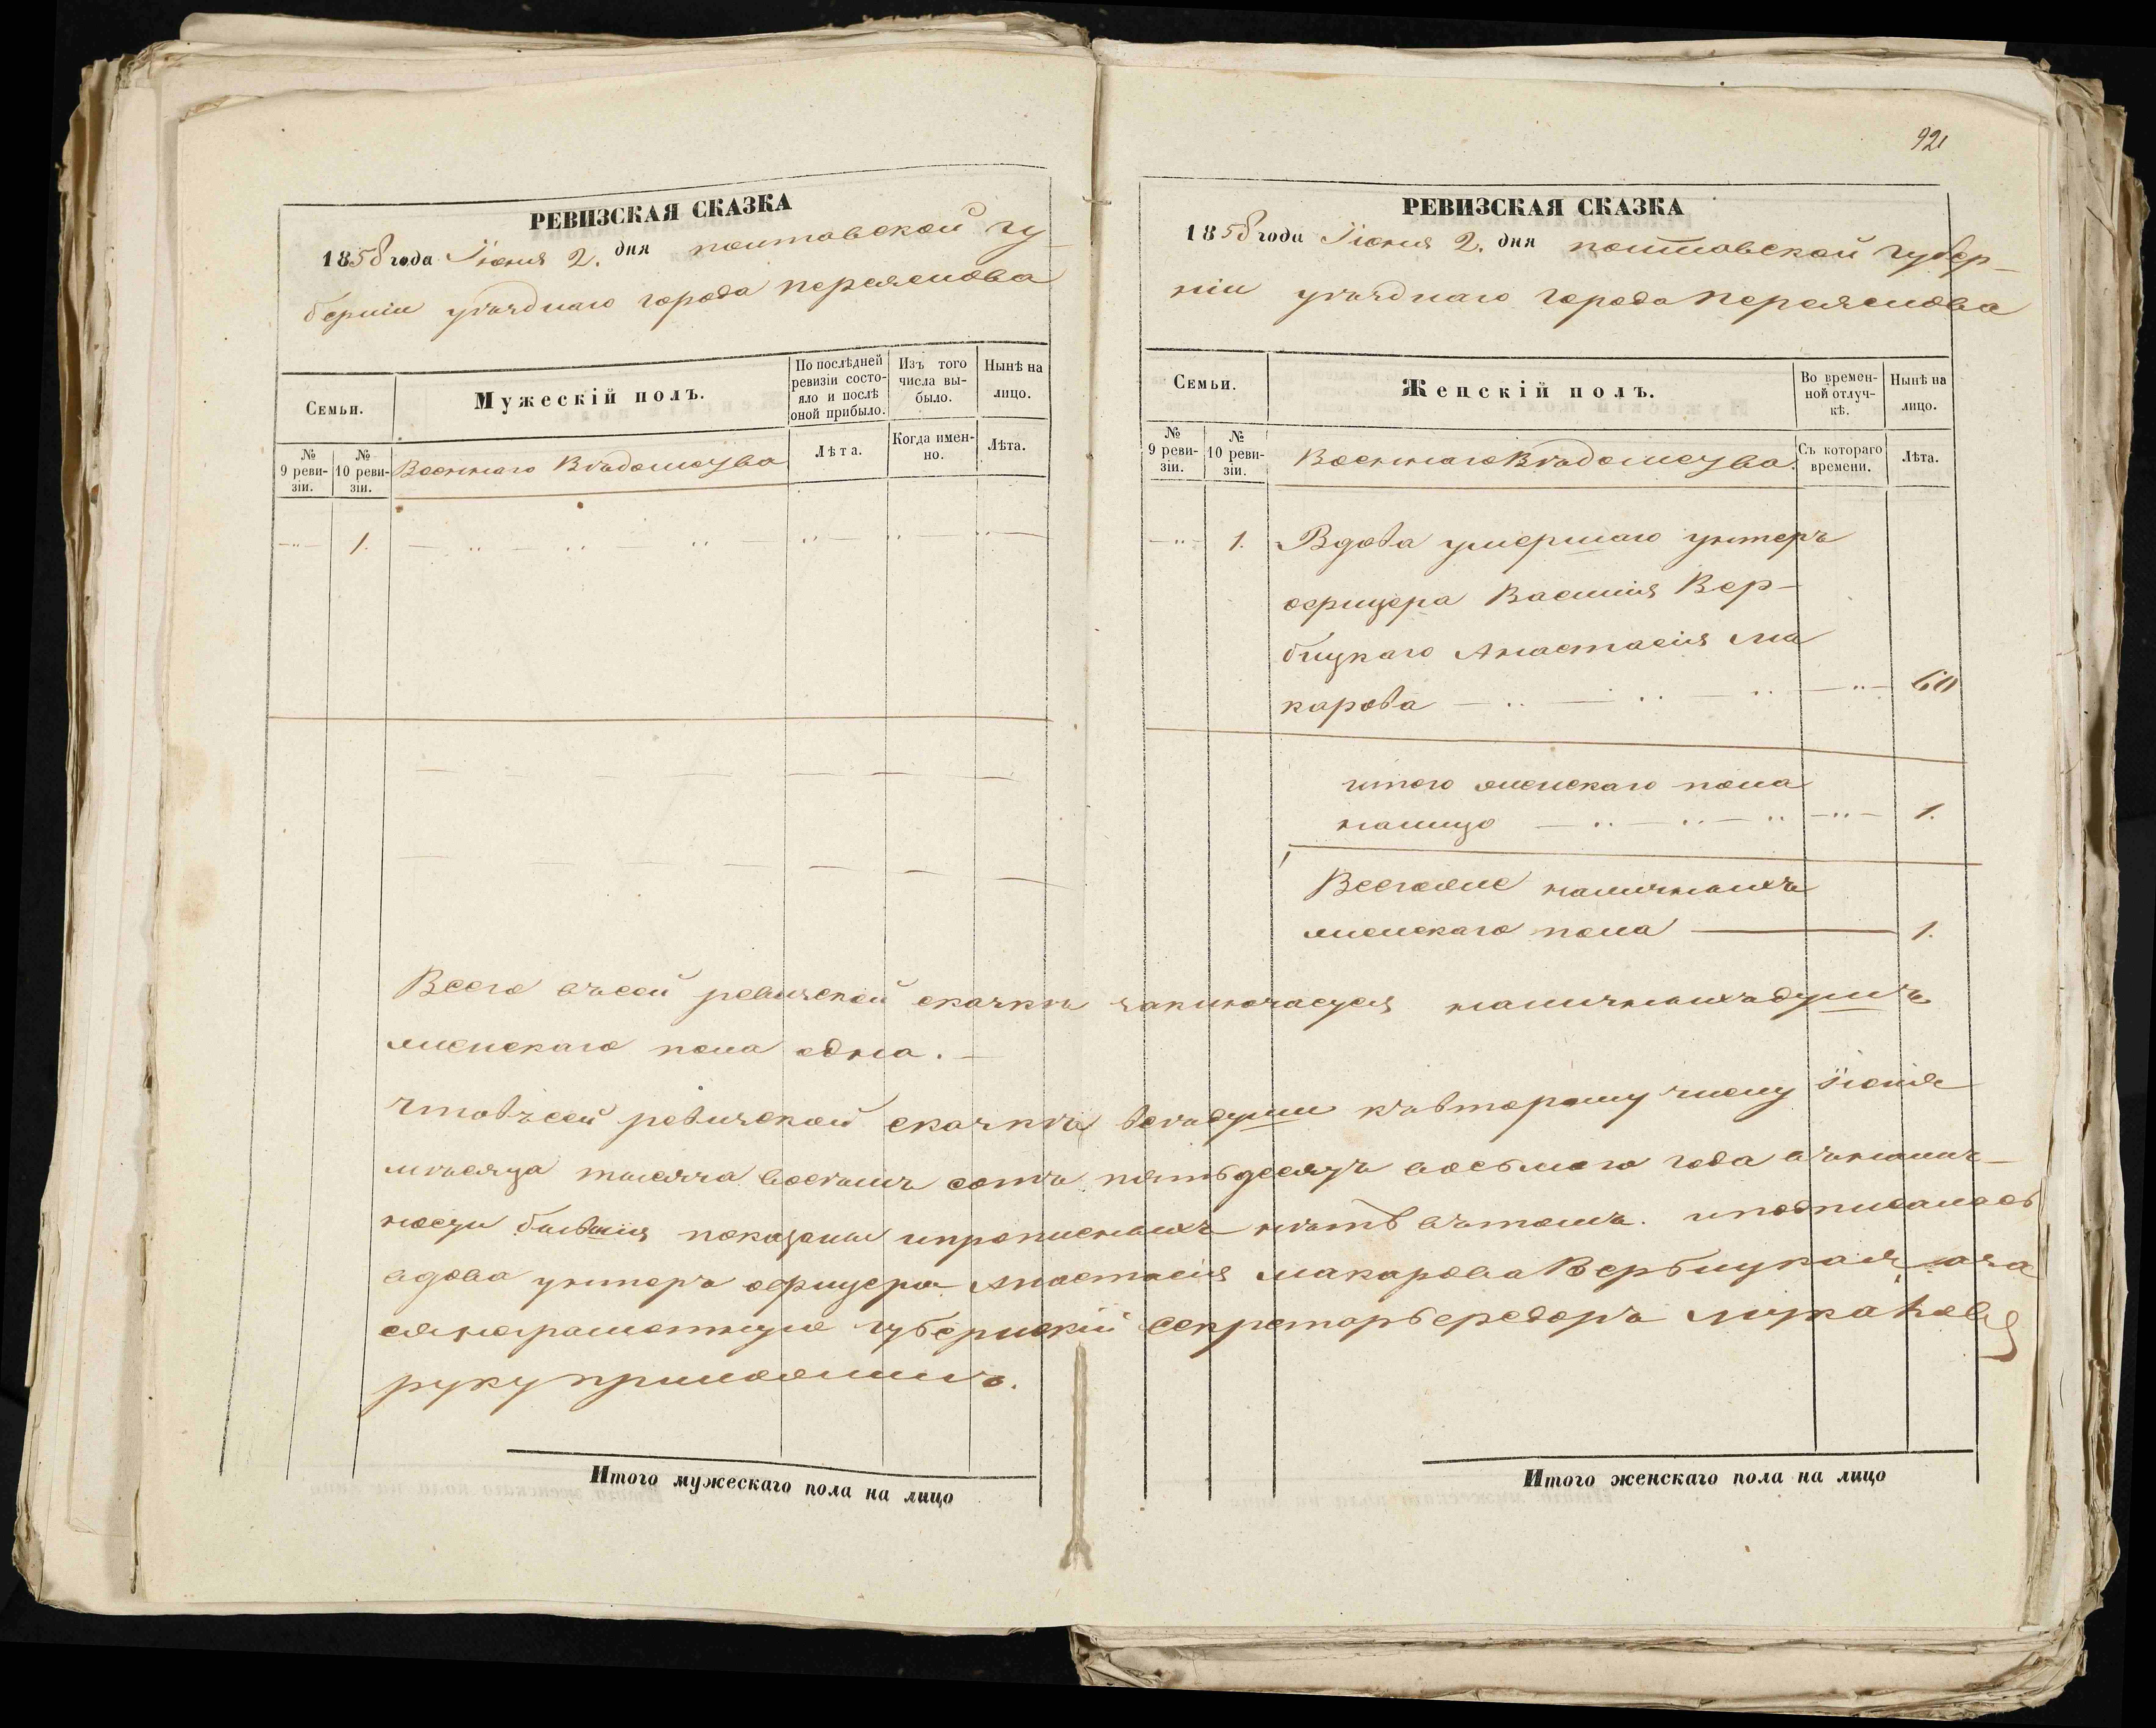 РЕВИЗСКАЯ СКАЗКА
1858 года Іюня 2. дня полтавской гу-
берніи уѣзднаго города переяслова
Семьи.
Мужескій полъ.
По послѣдней ревизіи состояло и послѣ оной прибыло.
Изъ того числа выбыло.
Нынѣ на лицо.
№ 9 ревизіи.
№ 10 ревизіи.
Военнаго Вѣдомства
Лѣта.
Когда именно.
Лѣта.
1.
92
РЕВИЗСКАЯ СКАЗКА
1858 года Іюня 2. дня полтавской губер-
ніи уѣзднаго города переяслова
Семьи.
Женскій полъ.
Во временной отлучкѣ.
Нынѣ на лицо.
№ 9 ревизіи.
№ 10 ревизіи.
Военнаго Вѣдомства.
Съ котораго времени.
Лѣта.
1. Вдова умершаго унтеръ
офицера Василія Вер-
бицкаго Анастасія ма
карова 60
итого женскаго пола
налицо 1.
Всегоже наличныхъ
женскаго пола 1.
Всего въсей ревизской сказкѣ заключается наличныхъ душъ
женскаго пола одна.
Чтовъсей ревизской сказкѣ всѣ души къвторому числу Іюня
мѣсяца тысяча восѣмь сотъ пятьдесятъ восьмого года въналич-
ности бывшія показаны ипрописныхъ нѣтъ вътомъ. иподписалась
вдова унтеръ офицера Анастасія макарова Вербицкая, аза
еянеграмотную губернскій секретарь федоръ
руку приложилъ.
Итого мужескаго пола на лицо
Итого женскаго пола на лицо